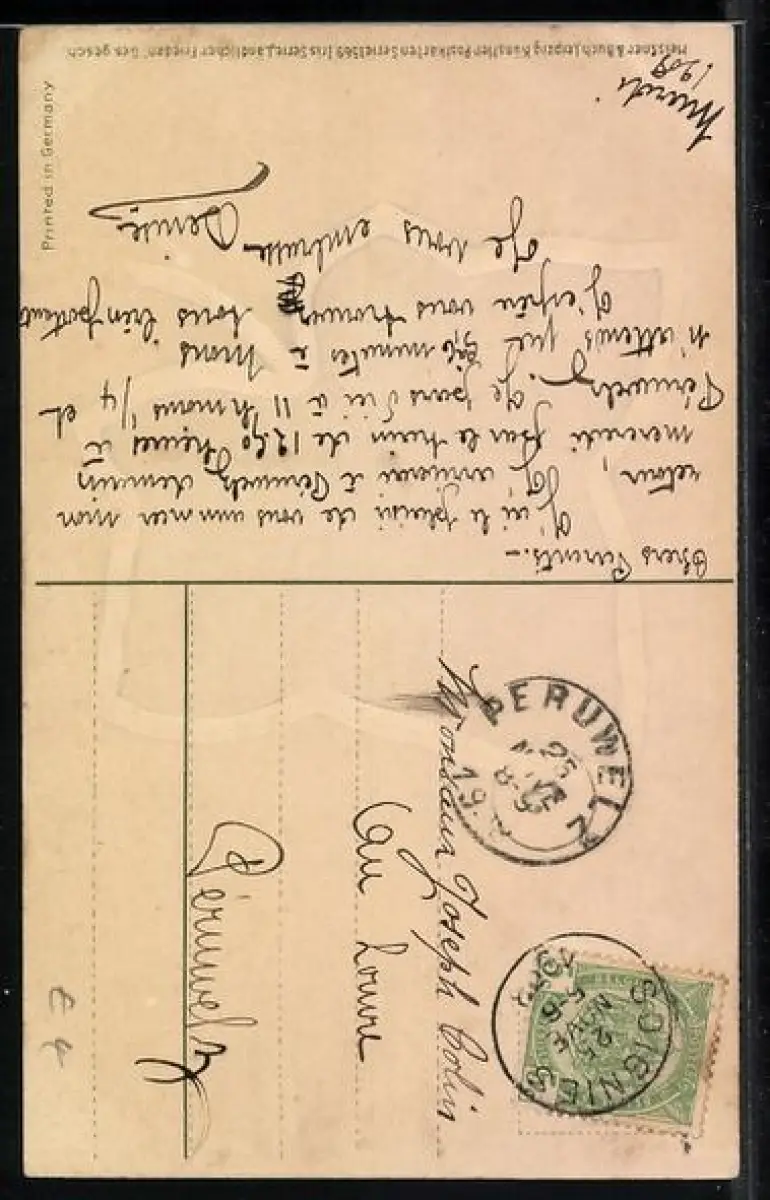 Meissner & Buch, Leipzig Künstler-Postkarten Serie 1569 Iris Serie „Ländlicher Frieden". Ges. gesch.
Printed in Germany
Mardi
Chers Parents. –
J'ai le plaisir de vous annoncer mon
retour, j'arriverai à Péruwelz demain
mercredi par le train de 12.90 heures à
Péruwelz. Je pars d'ici à 11 h moins 1/4 et
n'attends que dix minutes à Mons
J'espère vous trouver tous bien portant
Je vous embrasse
Denise
PERUWELZ
25
8-9
19
SOIGNIES
25
NOVE
5-6
Monsieur Joseph Colin
(au Louvre
Péruwelz
E 4